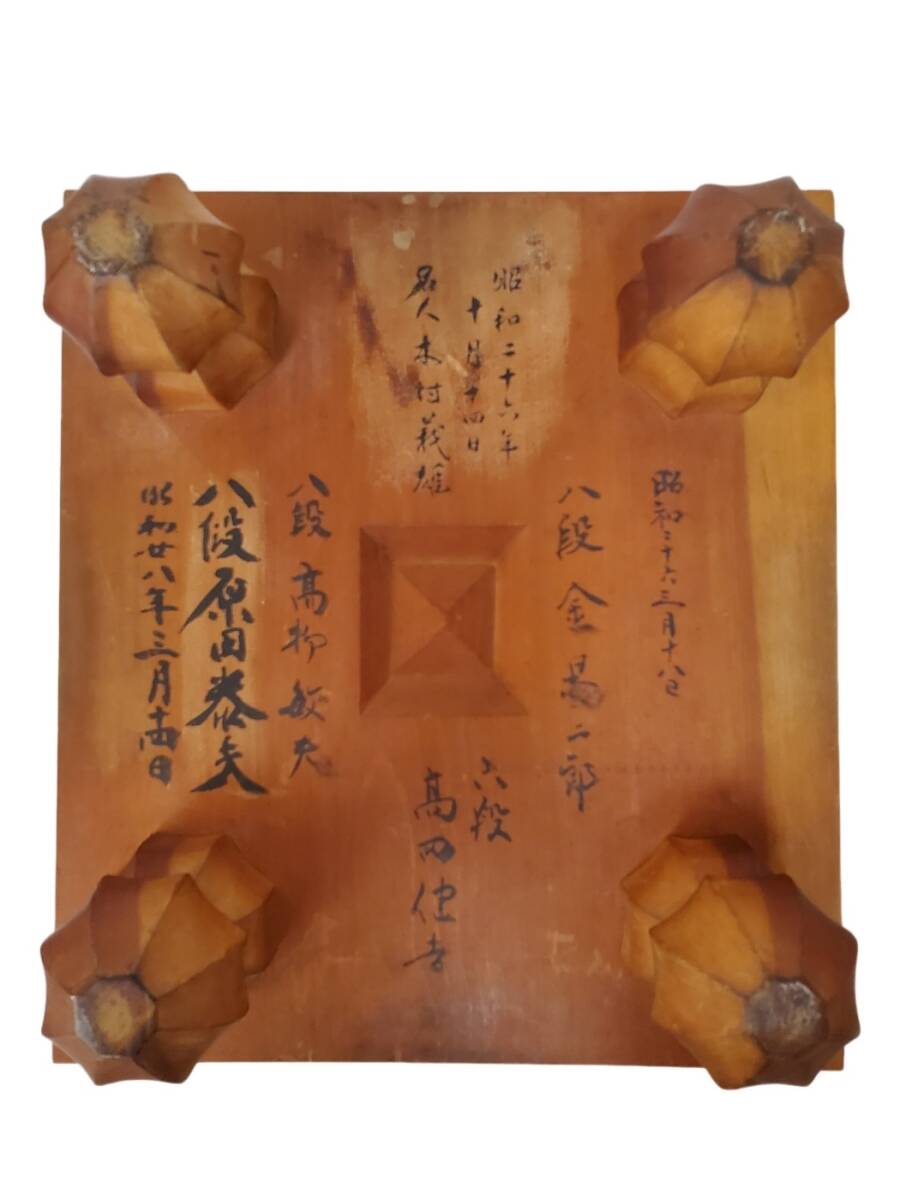 昭和二十六年
十月十四日
名人 木村義雄
昭和二十六三月十八日
八段 金易二郎
八段 高柳敏夫
八段 原田泰夫
昭和廿八年三月十四日
六段
高田